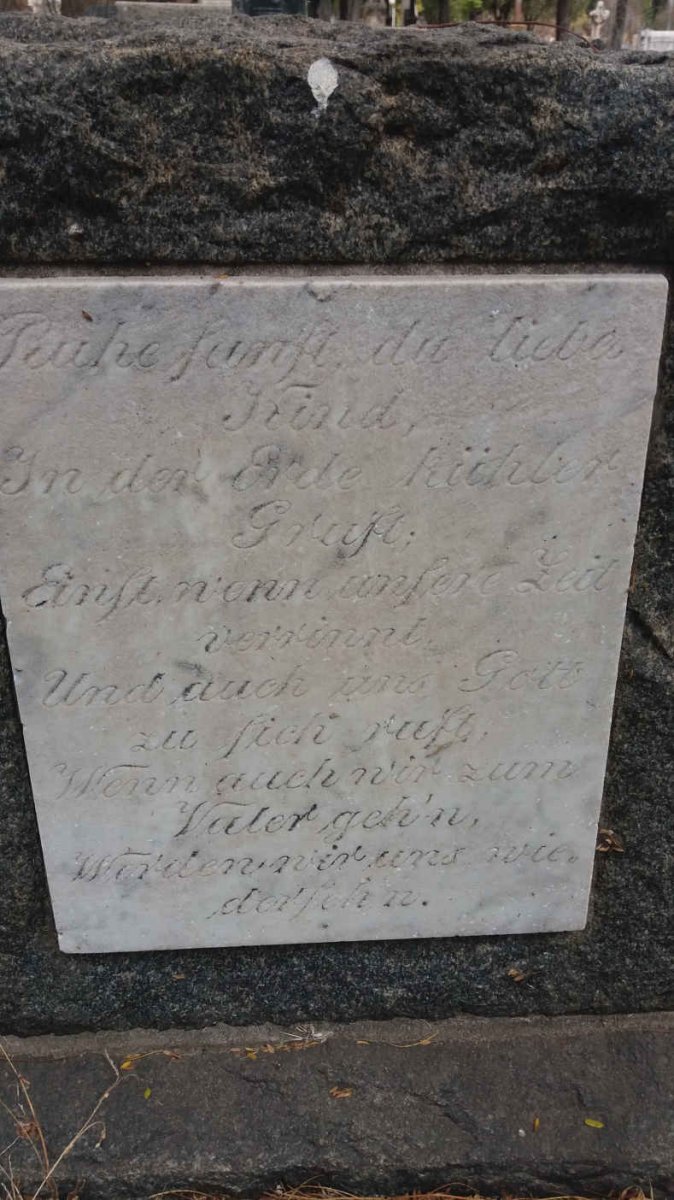 Ruhe sanft, du liebes
Kind,
In der Erde kühler
Gruft;
Einst, wenn unsere Zeit
verrinnt,
Und auch uns Gott
zu sich ruft,
Wenn auch wir zum
Vater geh'n,
Werden wir uns wie-
derseh'n.